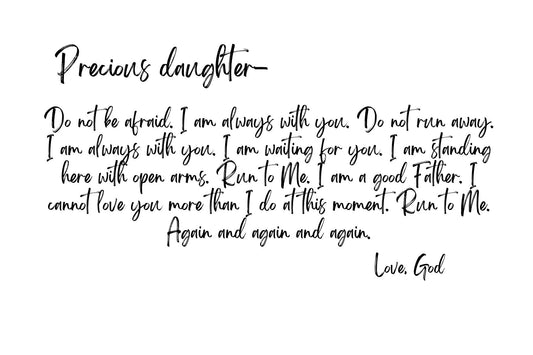 Precious daughter—
Do not be afraid. I am always with you. Do not run away.
I am always with you. I am waiting for you. I am standing
here with open arms. Run to Me. I am a good Father. I
cannot love you more than I do at this moment. Run to Me.
Again and again and again.
Love, God